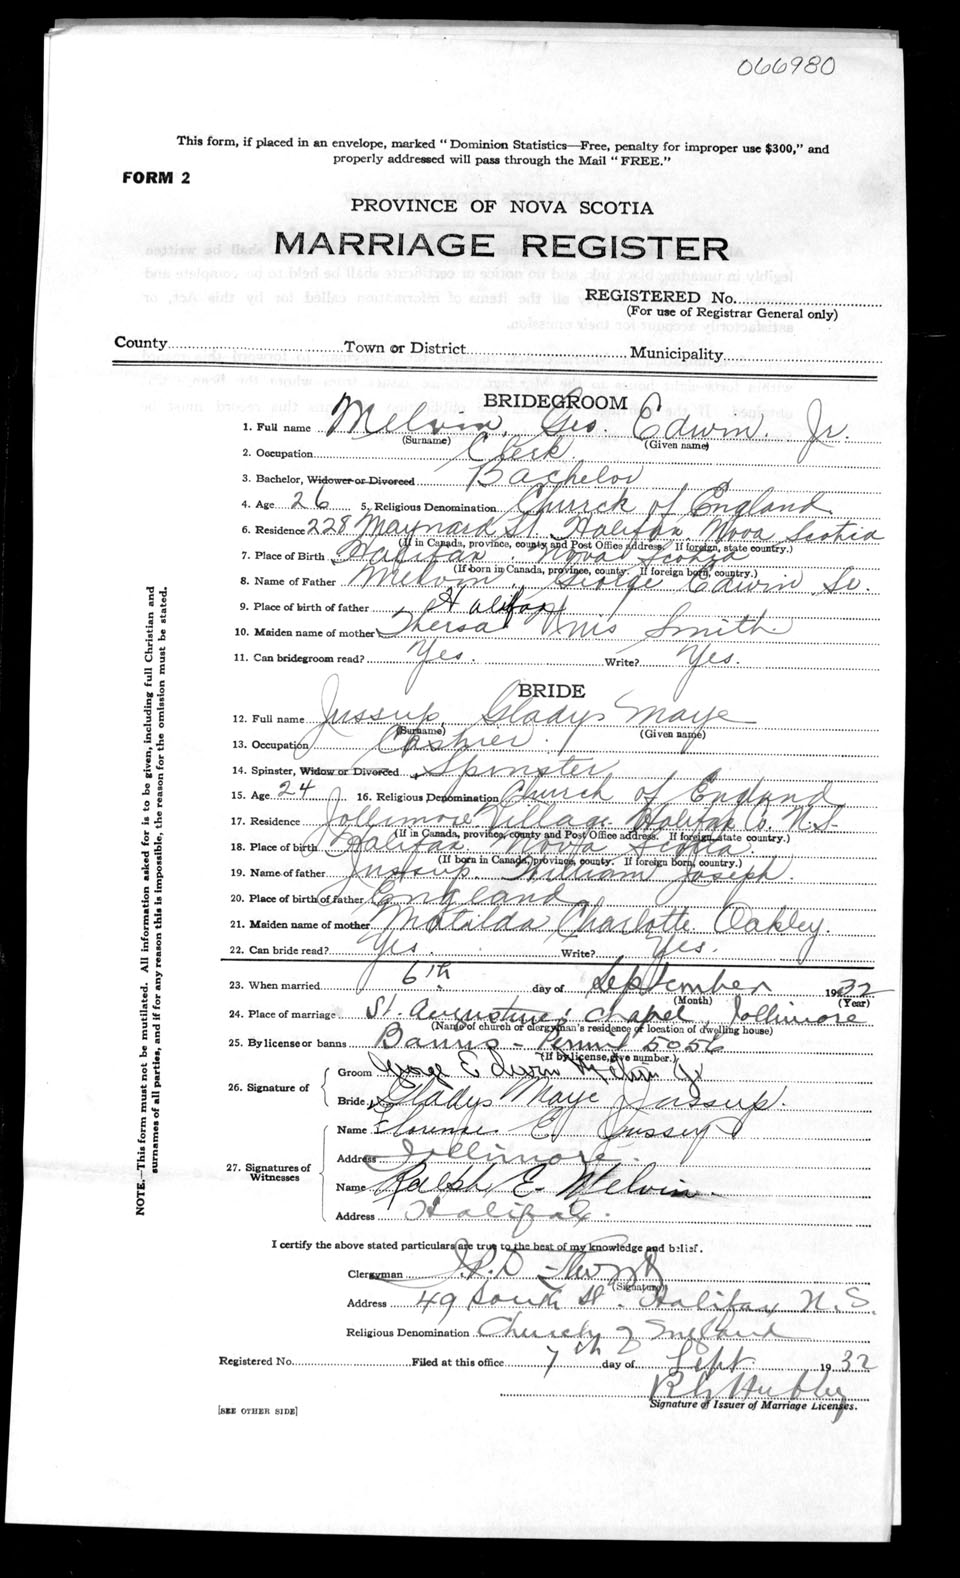 066980
This form, if placed in an envelope, marked "Dominion Statistics—Free, penalty for improper use $300," and
properly addressed will pass through the Mail "FREE."
FORM 2
PROVINCE OF NOVA SCOTIA
MARRIAGE REGISTER
REGISTERED No.
(For use of Registrar General only)
County Town or District Municipality
BRIDEGROOM
1. Full name Melvin, Geo. Edwin. Jr.
(Surname) (Given name)
2. Occupation Clerk
3. Bachelor, Widower or Divorced Bachelor
4. Age 26 5. Religious Denomination Church of England
6. Residence 228 Maynard St. Halifax, Nova Scotia
(If in Canada, province, county and Post Office address. If foreign, state country.)
7. Place of Birth Halifax Nova Scotia
(If born in Canada, province, county. If foreign born, country.)
8. Name of Father Melvin, George Edwin Sr.
9. Place of birth of father Halifax
10. Maiden name of mother Smith
11. Can bridegroom read? Yes. Write? Yes.
BRIDE
12. Full name Jussup, Gladys Maye
(Surname) (Given name)
13. Occupation Cashier.
14. Spinster, Widow or Divorced Spinster
15. Age 24 16. Religious Denomination Church of England
17. Residence Jollimore Village Halifax Co N.S.
(If in Canada, province, county and Post Office address. If foreign, state country.)
18. Place of birth Halifax Nova Scotia.
(If born in Canada, province, county. If foreign born, country.)
19. Name of father Jussup. William Joseph.
20. Place of birth of father England
21. Maiden name of mother Matilda Charlotte Oakley.
22. Can bride read? Yes. Write? Yes.
23. When married 6th day of September 1932
(Month) (Year)
24. Place of marriage St. Augustine's Chapel, Jollimore
(Name of church or clergyman's residence or location of dwelling house)
25. By license or banns Banns - Permit 5056
(If by license, give number.)
26. Signature of
Groom George Edwin Melvin Jr
Bride Gladys Maye Jussup.
27. Signatures of Witnesses
Name Florence E.
Address Jollimore.
Name Ralph E. Melvin
Address Halifax.
I certify the above stated particulars are true to the best of my knowledge and belief.
Clergyman
(Signature)
Address 49 South St. Halifax, N.S.
Religious Denomination Church of England
Registered No. Filed at this office 7th day of Sept 1932
Signature of Issuer of Marriage Licenses.
[SEE OTHER SIDE]
NOTE.—This form must not be mutilated. All information asked for is to be given, including full Christian and
surnames of all parties, and if for any reason this is impossible, the reason for the omission must be stated.